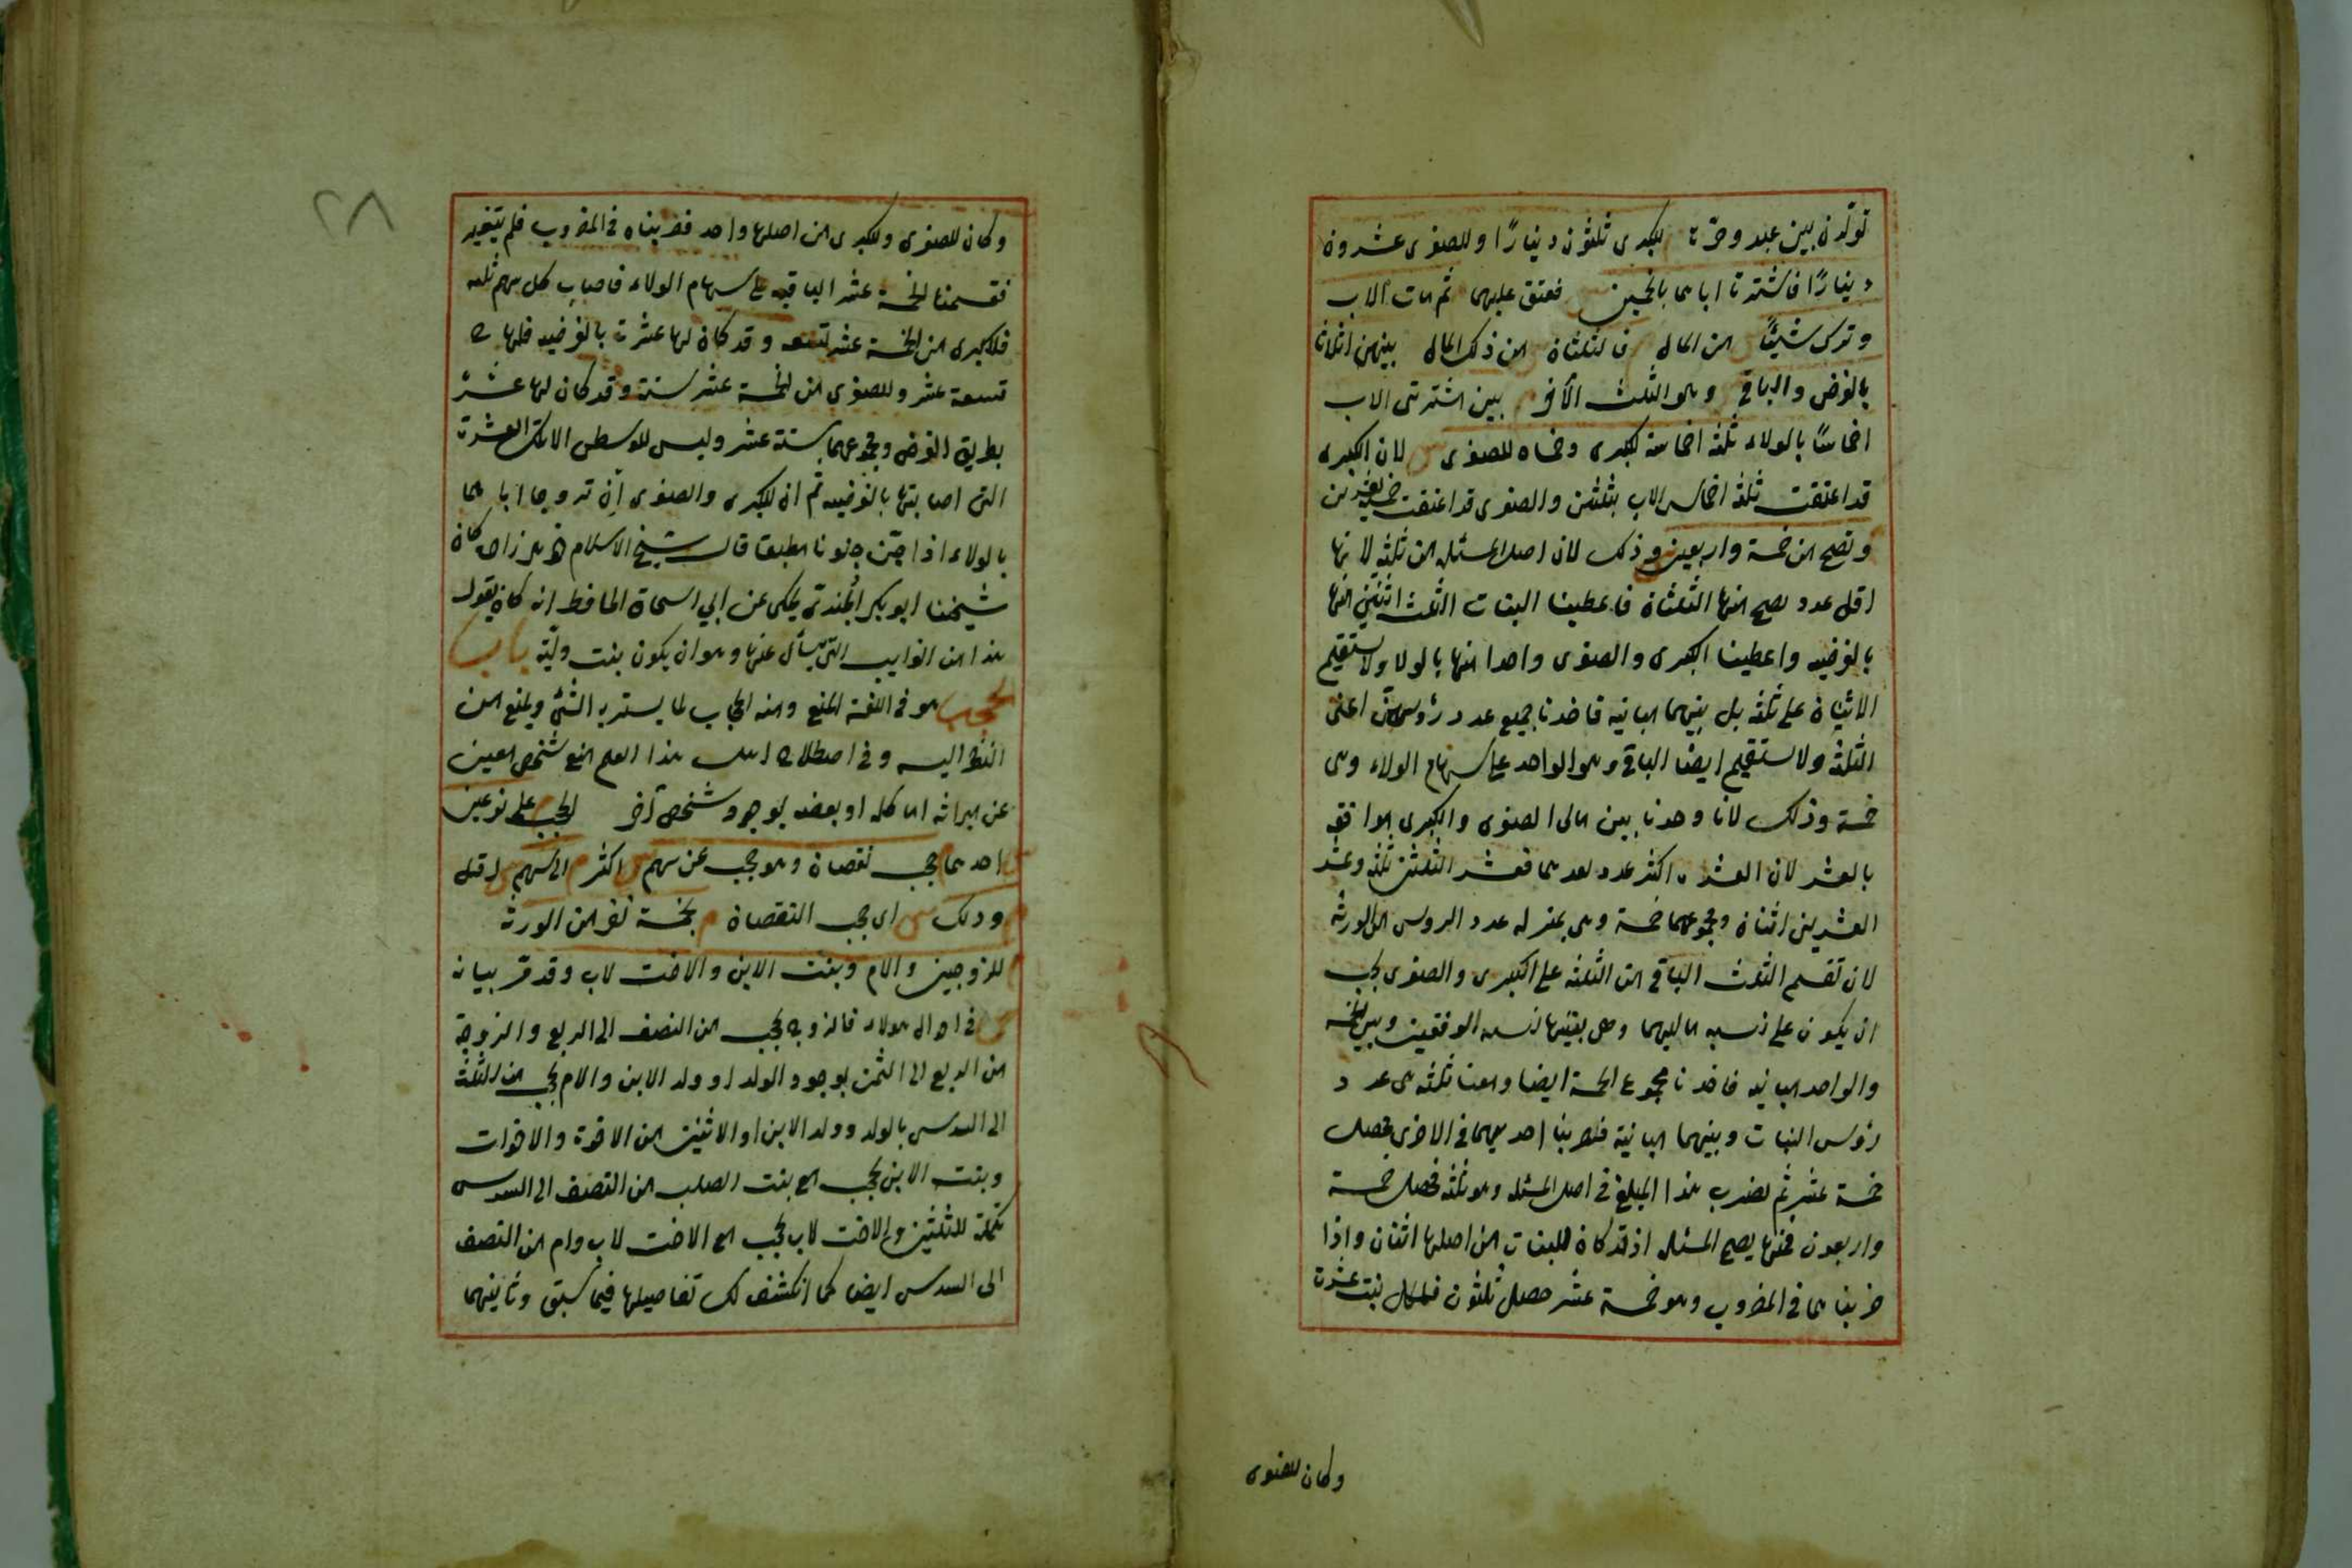 تولّدن بين عبد وحرّة للكبرى ثلثون دينارًا وللصغرى عشرون
دينارًا فاشترتا اباهما بالخمسين فعتق عليهما ثم مات الاب
وترك شيئًا من المال فالثلثان من ذلك المال بينهن اثلاثا
بالفرض والباقي وهو الثلث الآخر بين اشترتى الاب
اخماسًا بالولاء ثلثة اخماسه للكبرى وخمساه للصغرى لان الكبرى
قد اعتقت ثلثة اخماس الاب بثلثين والصغرى قد اعتقت خمسيه بعشرين
وتصح من خمسة واربعين وذلك لان اصل المسئلة من ثلثة لانها
اقل عدد يصح منها الثلثان فاعطينا البنات الثلث اثنين منها
بالفرضيه واعطينا الكبرى والصغرى واحدا منها بالولا ولا يستقيم
الاثنان على ثلثة بل بينهما مباينة فاخذنا جميع عدد رؤسهن اعنى
الثلثة ولا يستقيم ايضا الباقي وهو الواحد على سهام الولاء وهى
خمسة وذلك لانا وجدنا بين مالى الصغرى والكبرى موافقة
بالعشر لان العشرة اكثر عدد يعدهما فعشر الثلثين ثلثة وعشر
العشرين اثنان ومجموعهما خمسة وهى بمنزلة عدد الروس من الورثة
لان تقسم الثلث الباقي من الثلثة على الكبرى والصغرى يجب
ان يكون على نسبة ماليهما وهى بعينها نسبة الوفقين وبين الخمسة
والواحد مباينة فاخذنا مجموع الخمسة ايضا ومعنا ثلثة هى عدد
رؤس البنات وبينهما مباينة فضربنا احديهما في الاخرى فحصل
خمسة عشر ثم نضرب هذا المبلغ في اصل المسئلة وهو ثلثة فحصل خمسة
واربعون فمنها يصح المسئلة اذ قد كان للبنات من اصلها اثنان واذا
ضربناهما في المضروب وهو خمسة عشر حصل ثلثون فلكل بنت عشرة
وكان للصغرى
٢٨
وكان للصغرى وللكبرى من اصلها واحد فضربناه في المضروب فلم يتغير
فقسمنا الخمسة عشر الباقية على سهام الولاء فاصاب كل سهم ثلثة
فللكبرى من الخمسة عشر تسعة وقد كان لها عشرة بالفرضيه فلها
تسعة عشر وللصغرى من الخمسة عشر ستة وقد كان لها عشرة
بطريق الفرض ومجموعهما ستة عشر وليس للوسطى الا تلك العشرة
التى اصابتها بالفرضيه ثم ان للكبرى والصغرى ان تزوجا اباهما
بالولاء اذا جنّ جنونا مطبقا قال شيخ الاسلام خواهر زاده كان
شيخنا ابو بكر الجندى يحكى عن ابي اسحاق الحافظ انه كان يقول
هذا من الغرايب التى يسأل عنها وهو ان يكون بنت وليّة باب
الحجب هو في اللغة المنع ومنه الحجاب لما يستر به الشئ ويمنع من
النظر اليه وفي اصطلاح اهل هذا العلم منع شخص معين
عن ميراثه اما كله او بعضه بوجود شخص آخر الحجب على نوعين
احدهما حجب نقصان وهو حجب عن سهم اكثر الى سهم اقل
وذلك اى حجب النقصان بخمسة نفر من الورثة
للزوجين والام وبنت الابن والاخت لاب وقد مرّ بيانه
في احوال هولاء فالزوج يحجب من النصف الى الربع والزوجة
من الربع الى الثمن بوجود الولد او ولد الابن والام يحجب من الثلث
الى السدس بالولد وولد الابن او الاثنين من الاخوة والاخوات
وبنت الابن يحجب مع بنت الصلب من النصف الى السدس
تكملة للثلثين والاخت لاب يحجب مع الاخت لاب وام من النصف
الى السدس ايضا كما انكشف لك تفاصيلها فيما سبق وثانيهما